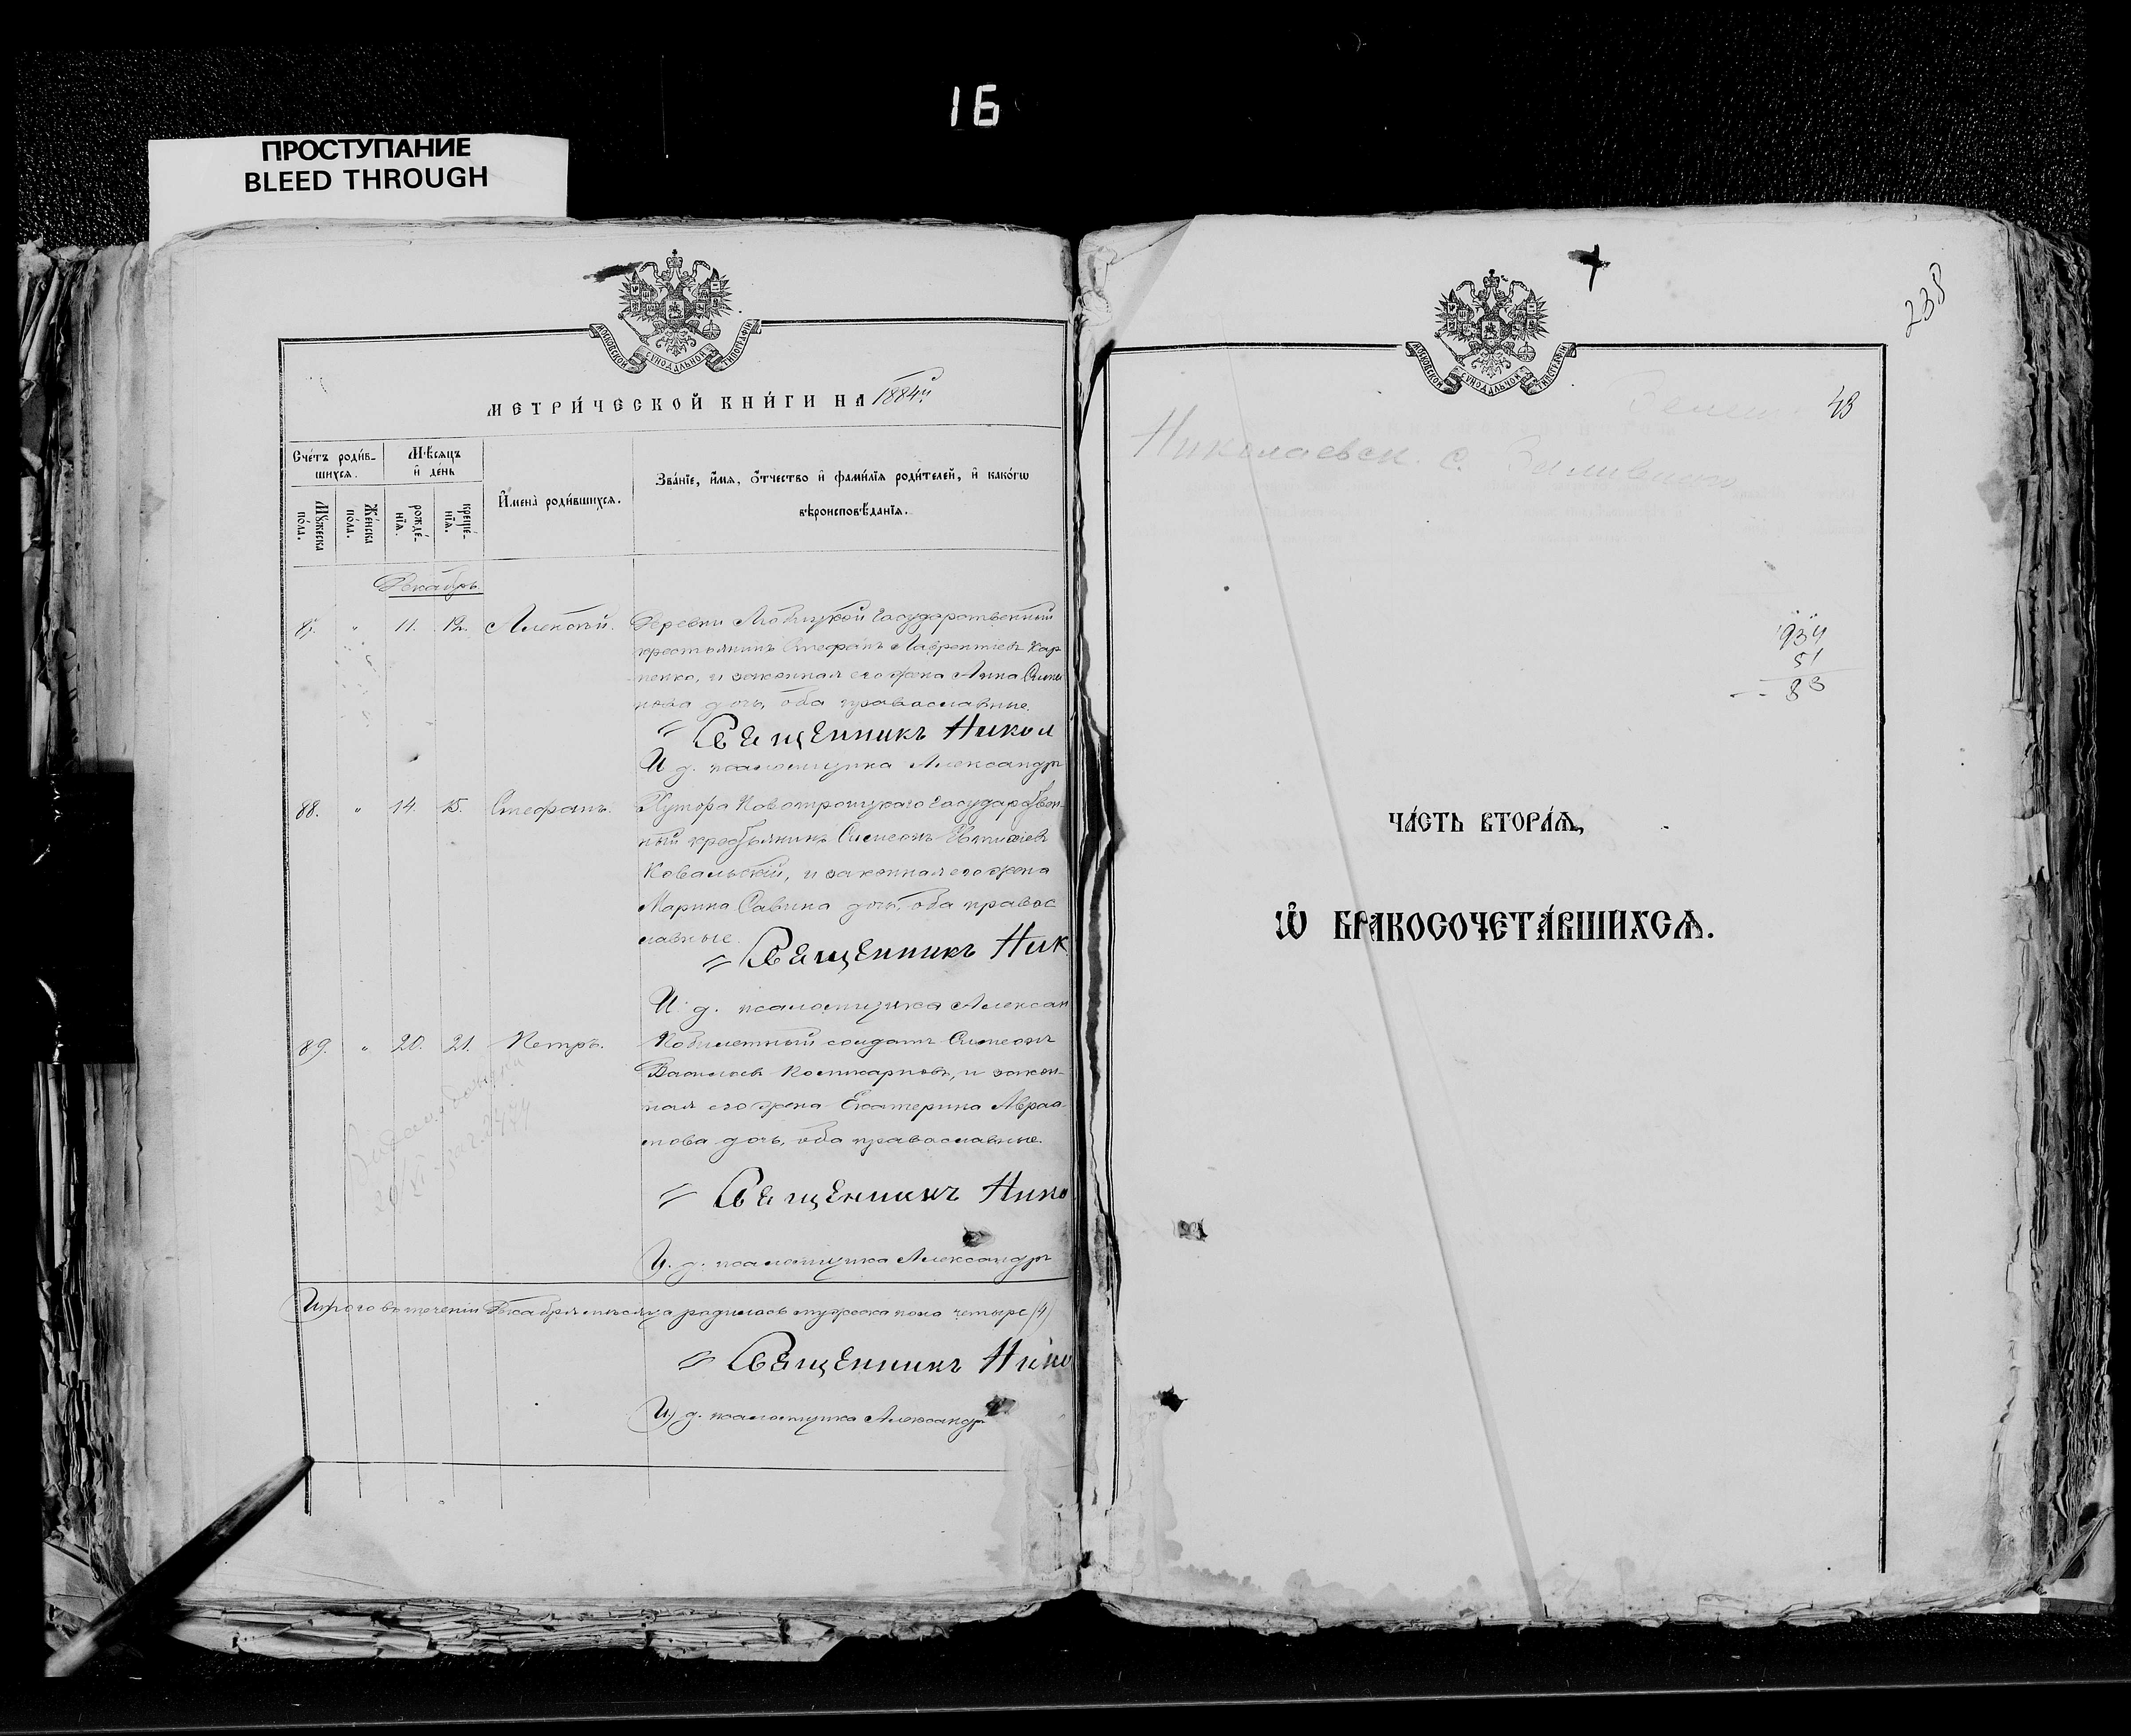 16
ПРОСТУПАНИЕ
BLEED THROUGH
МОСКОВСКОЙ СѴНОДАЛЬНОЙ ТИПОГРАФІИ
МЕТРИ́ЧЕСКОЙ КНИ́ГИ НА 1884й
Сче́тъ роди́в-
шихся.
Мѣ́сяцъ
и҆ де́нь
И҆мена̀ роди́вшихся.
Зва́нїе, и҆́мя, ѻ҆́тчество и҆ фами́лїя роди́телей, и҆ како́гѡ
вѣроисповѣ́данїя.
Мꙋ́жеска
по́ла.
Же́нска
по́ла.
рожде́-
нїя.
креще́-
нїя.
Декабрь
87. " 11. 12. Алексѣй. Деревни Любицкой Государственный
крестьянинъ Стефанъ Лаврентіевъ Кар
пенко, и законная его жена Анна Симе
нова дочь, оба православные.
Священникъ Никол
И. д. псаломщика Александръ
88. " 14. 15. Стефанъ. Хутора Новотроицкаго Государствен-
ный крестьянинъ Симеонъ
Ковальскій, и законная его жена
Марина Савина дочь, оба правос
лавные.
Священникъ Ник
И. д. псаломщика Алексан
89. " 20. 21. Петръ. Побилетный солдатъ Симеонъ
Васильевъ Поликарповъ, и закон-
ная его жена Екатерина Авраа
мова дочь, оба православные.
Священникъ Нико
И. д. псаломщика Александръ
Итого въ теченіи Декабря мѣсяца родилось мужеска пола четыре (4)
Священникъ Нико
И. д. псаломщика Александръ
238
МОСКОВСКОЙ СѴНОДАЛЬНОЙ ТИПОГРАФІИ
43
Николаевск. с.
934
51
83
ЧА́СТЬ ВТОРА́Ѧ,
Ѽ БРАКОСОЧЕТА́ВШИХСѦ.